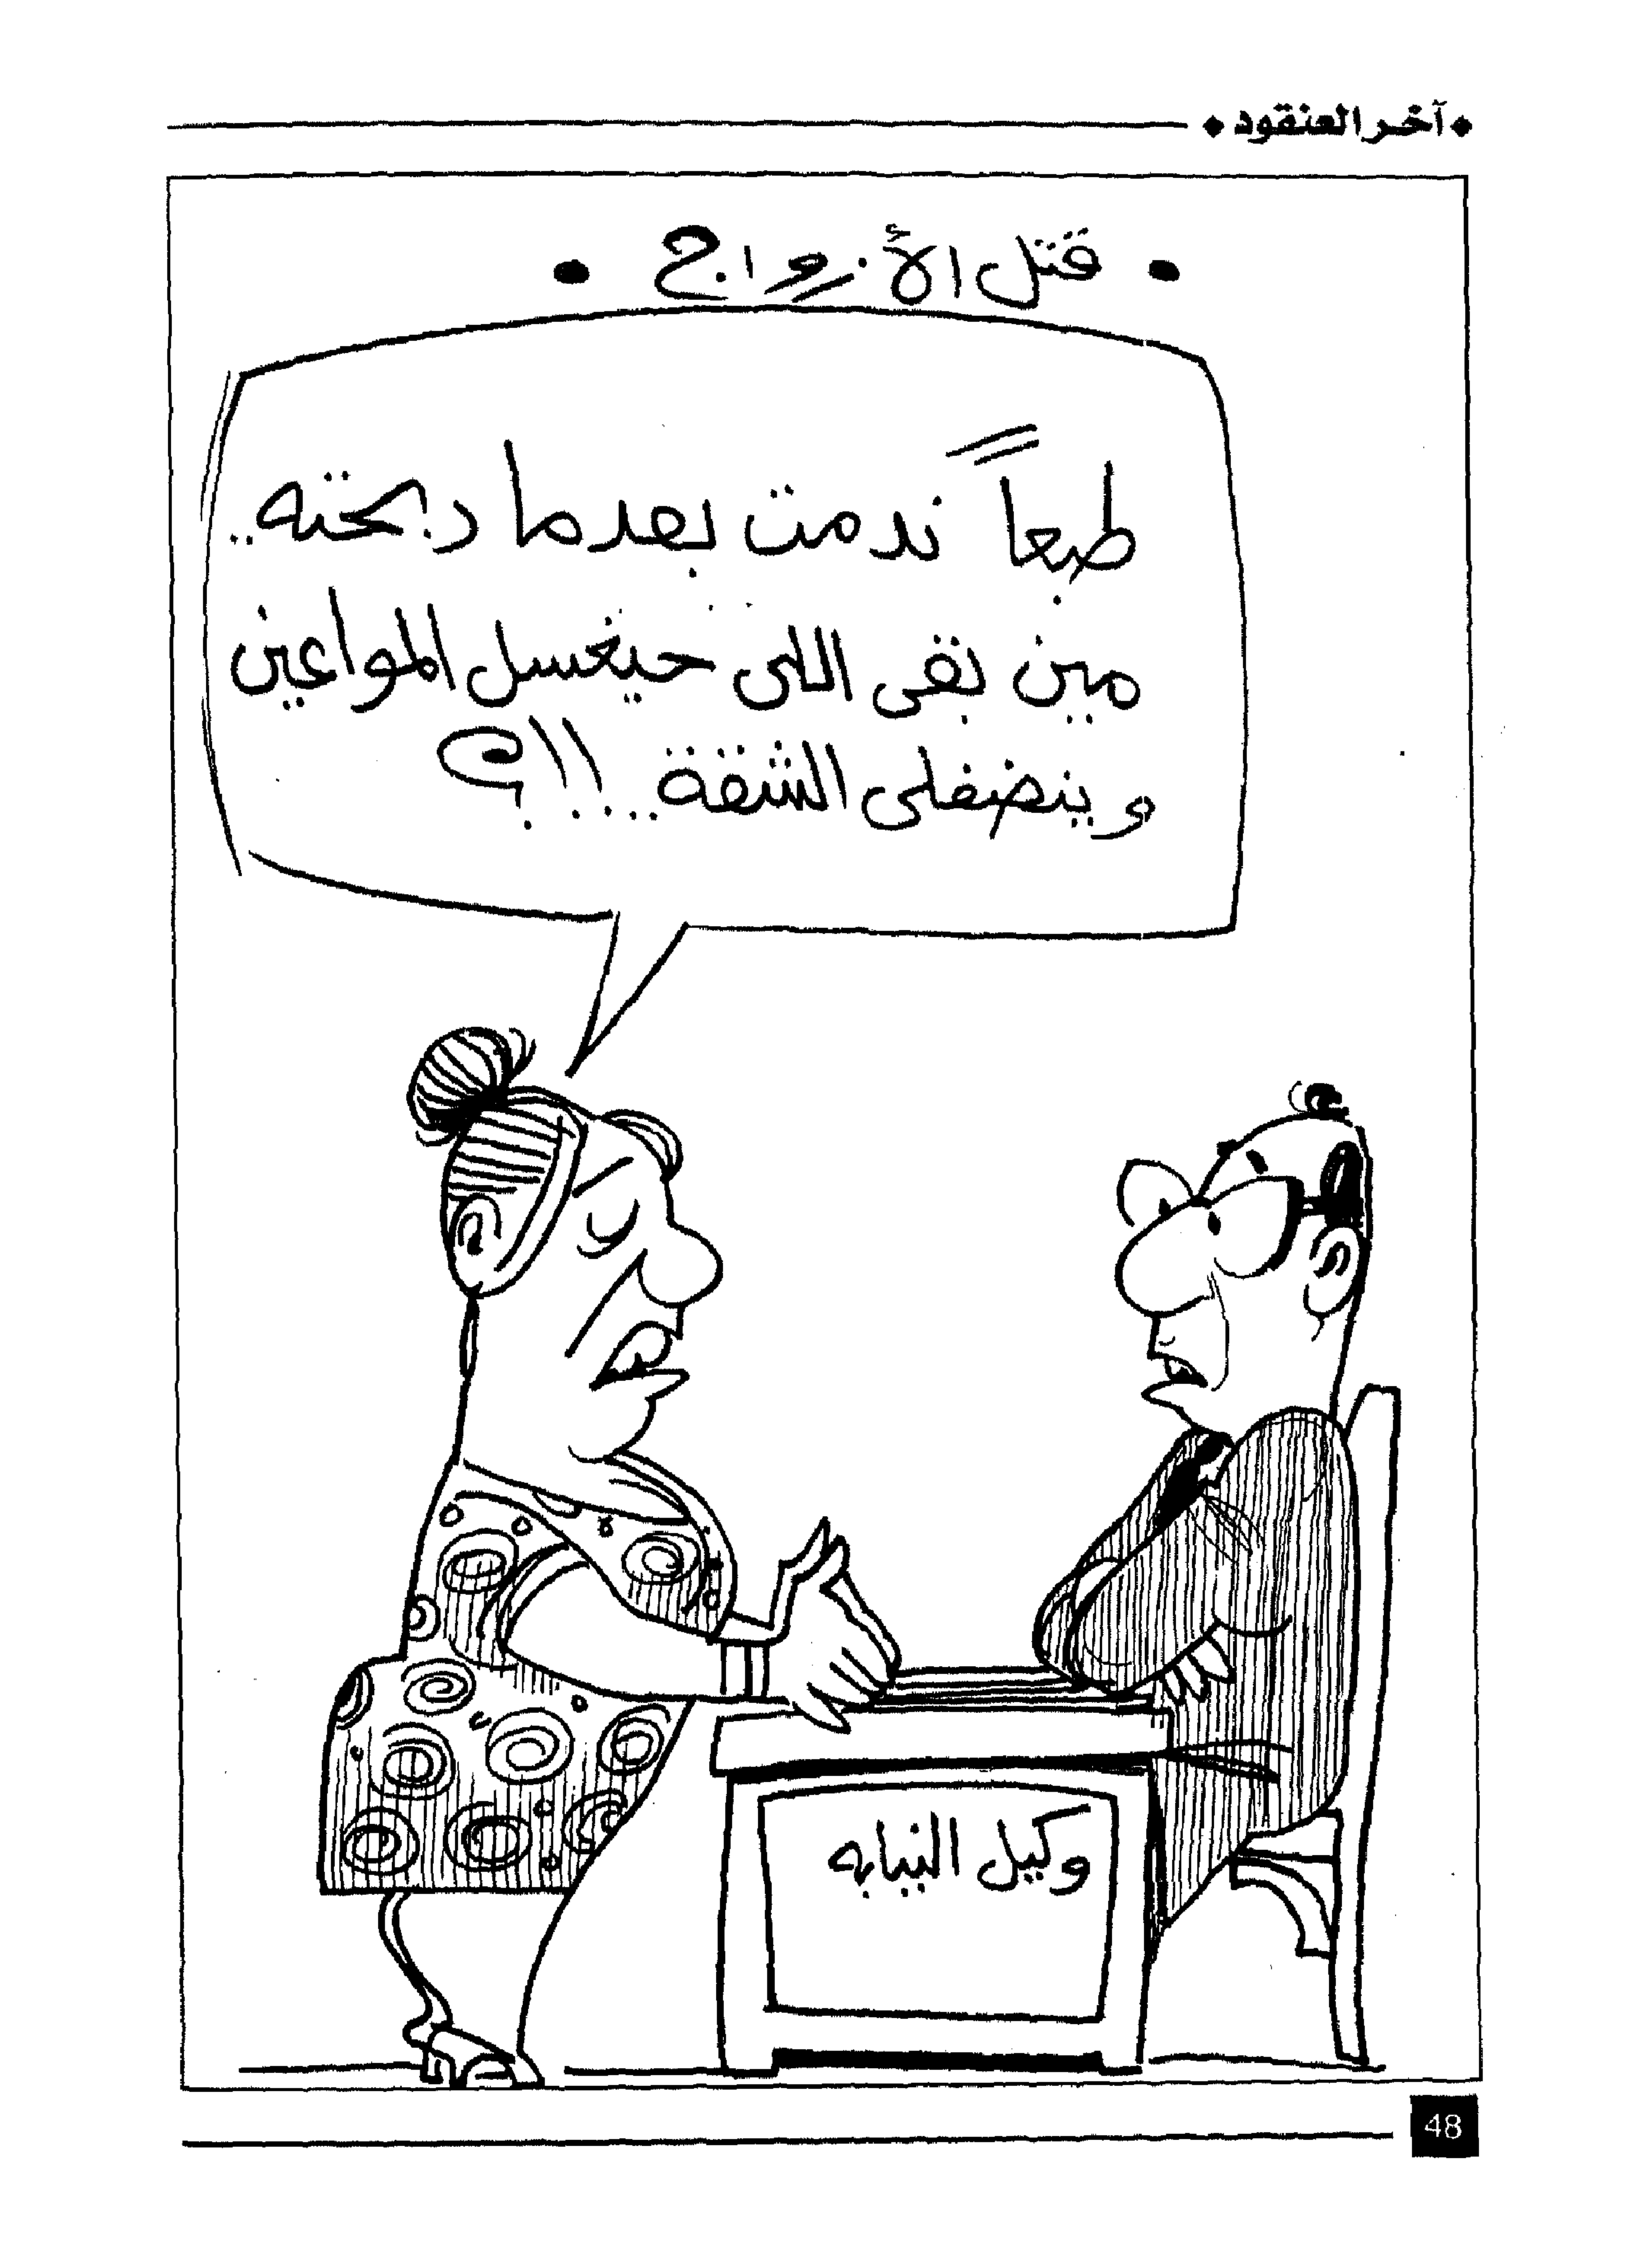 آخر العنقود
• قتل الأزواج •
طبعاً ندمت بعدما دبحته..
مين بقى اللى حيغسل المواعين
وينضفلى الشقة..!!؟
وكيل النيابه
48